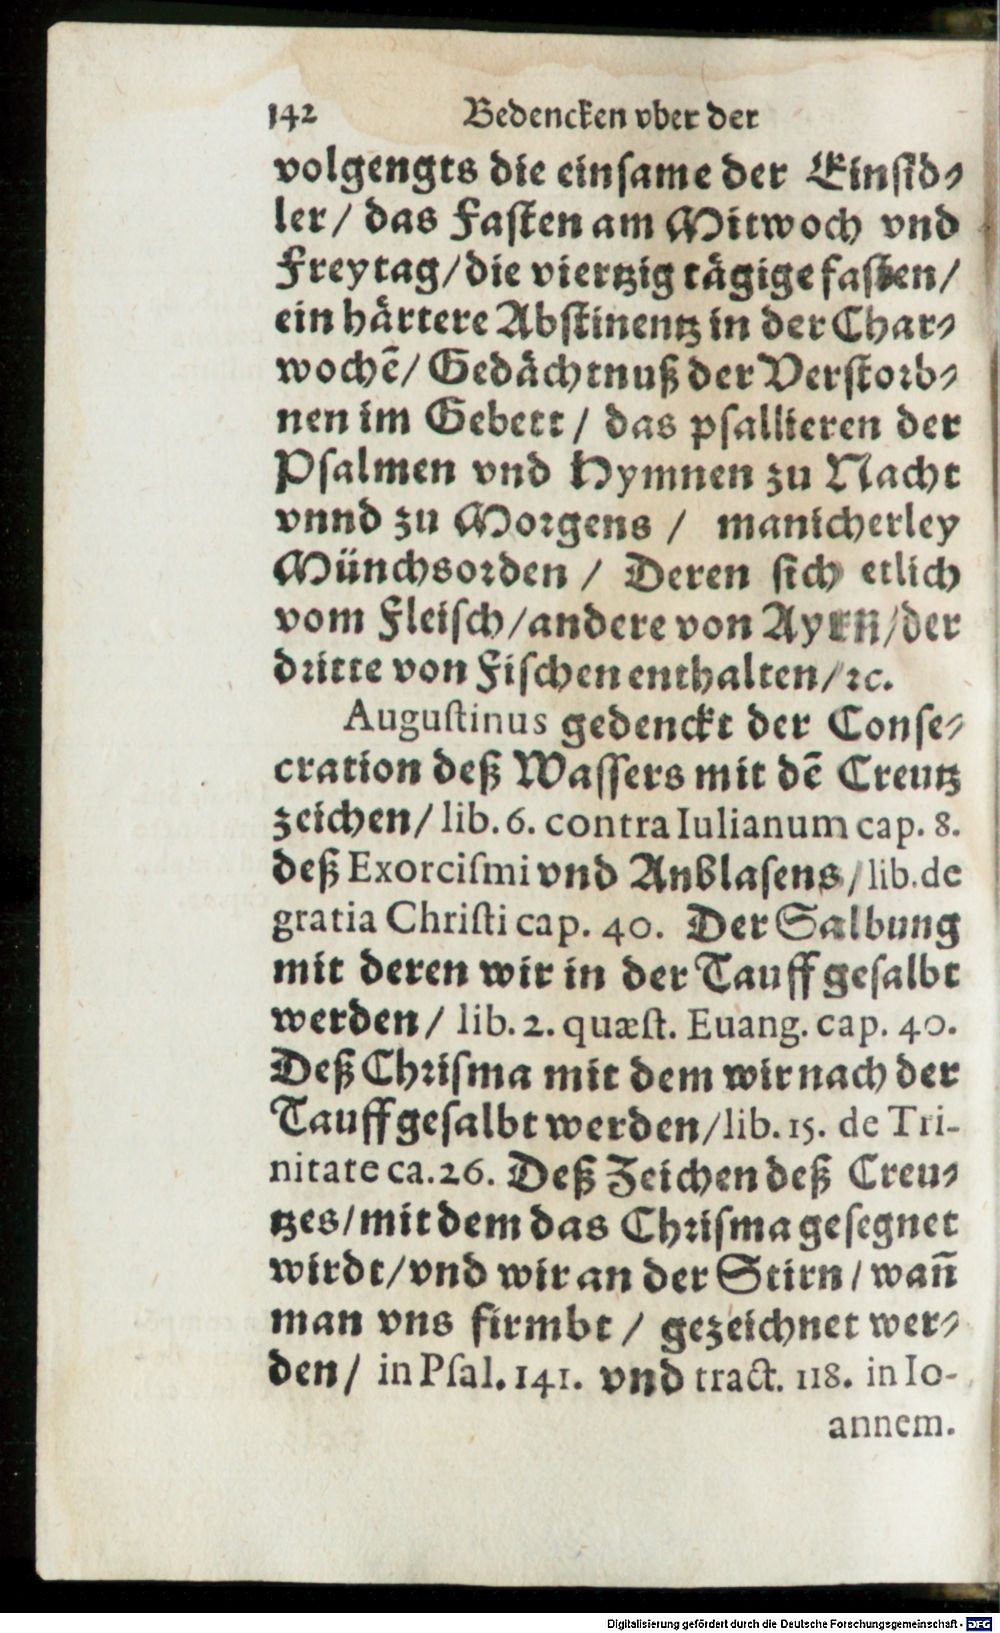 142 Bedencken vber der
volgengts die einsame der Einsid⸗
ler/ das Fasten am Mitwoch vnd
Freytag/die viertzig tägige fasten/
ein härtere Abstinentz in der Char⸗
wochẽ/ Gedächtnuß der Verstorb⸗
nen im Gebett/ das psallieren der
Psalmen vnd Hymnen zu Nacht
vnnd zu Morgens / manicherley
Münchsorden / Deren sich etlich
vom Fleisch/andere von Ayrn̄/der
dritte von Fischen enthalten/ꝛc.
Augustinus gedenckt der Conse⸗
cration deß Wassers mit dẽ Creutz
zeichen/ lib. 6. contra Iulianum cap. 8.
deß Exorcismi vnd Anblasens/lib. de
gratia Christi cap. 40. Der Salbung
mit deren wir in der Tauff gesalbt
werden/ lib. 2. quæst. Euang. cap. 40.
Deß Chrisma mit dem wir nach der
Tauff gesalbt werden/lib. 15. de Tri-
nitate ca. 26. Deß Zeichen deß Creu⸗
tzes/mit dem das Chrisma gesegnet
wirdt/vnd wir an der Stirn/ wañ
man vns firmbt / gezeichnet wer⸗
den/ in Psal. 141. vnd tract. 118. in Io-
annem.
Digitalisierung gefördert durch die Deutsche Forschungsgemeinschaft - DFG